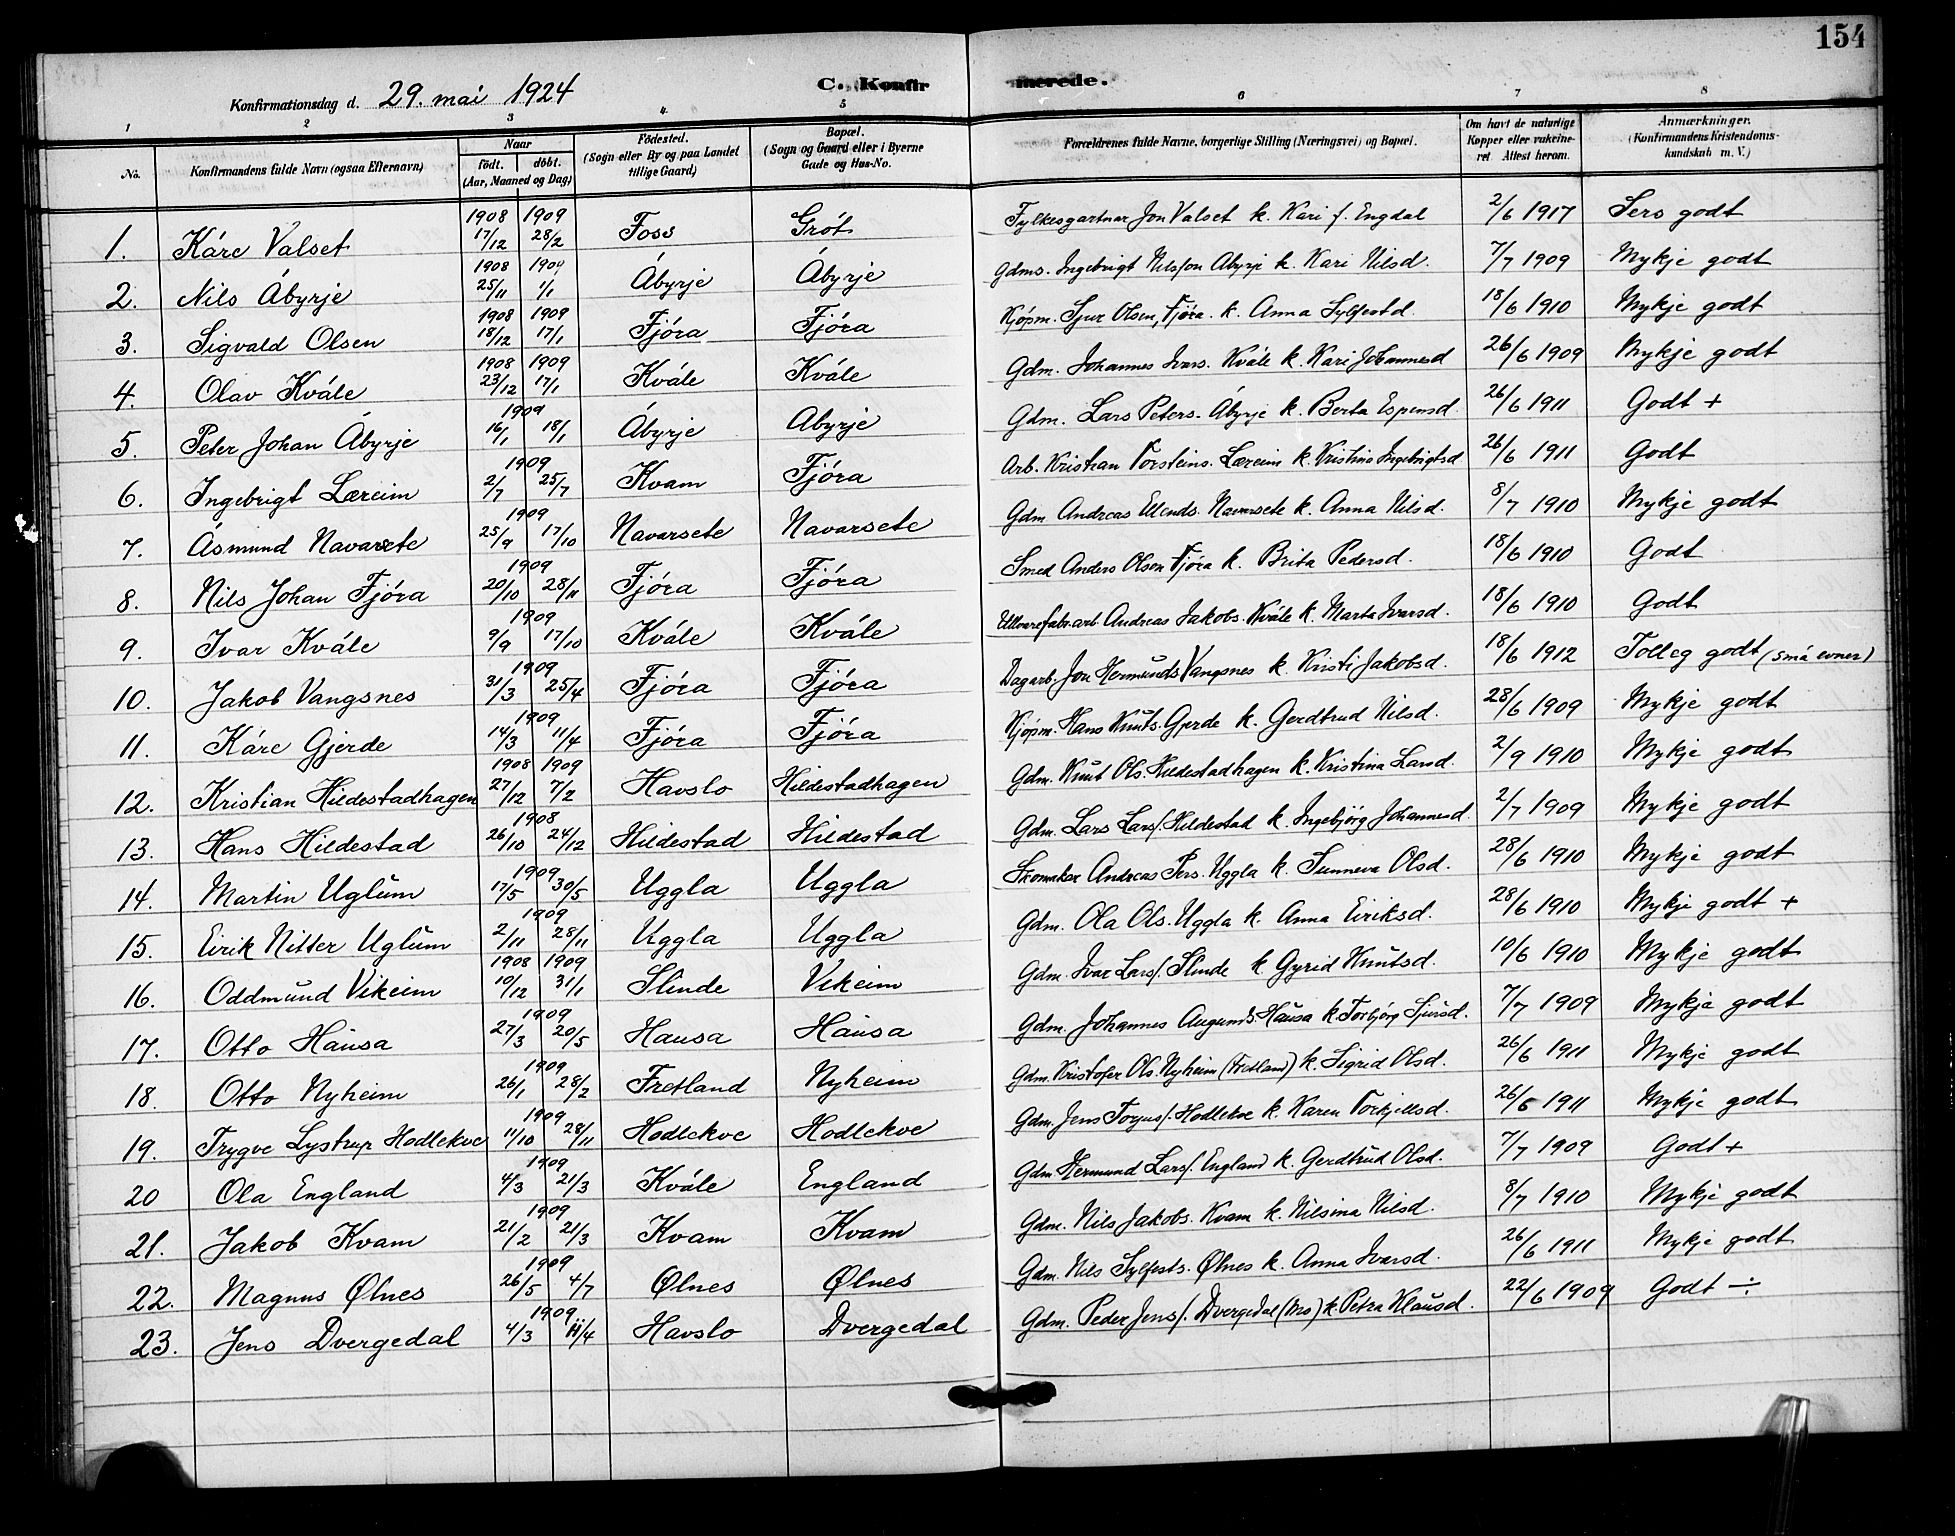 154
Konfirmationsdag d. 29. mai 1924 C. Konfirmerede.
1 2 3 4 5 6 7 8
No. Konfirmandens fulde Navn (ogsaa Efternavn) Naar født. døbt. (Aar, Maaned og Dag) Fødested. (Sogn eller By og paa Landet tillige Gaard) Bopæl. (Sogn og Gaard eller i Byerne Gade og Hus-No. Forældrenes fulde Navne, borgerlige Stilling (Næringsvei) og Bopæl. Om havt de naturlige Kopper eller vakcineret. Attest herom. Anmærkninger. (Konfirmandens Kristendomskundskab m. V.)
1. Káre Valset 1908 17/12 1909 28/2 Foss Grót Fylkesgartnar Jon Valset k. Kari f. Engdal 2/6 1917 Sers godt
2. Nils Ábyrje 1908 25/11 1909 1/1 Ábyrje Ábyrje Gdms. Ingebrigt Nilsson Abyrje k. Kari Nilsd. 7/7 1909 Mykje godt
3. Sigvald Olsen 1908 18/12 1909 17/1 Fjóra Fjóra Kjópm. Sjur Olsen, Fjóra. k. Anna Sylfestd. 18/6 1910 Mykje godt
4. Olav Kvále 1908 23/12 1909 17/1 Kvále Kvále Gdm. Johannes Ivars. Kvále k. Kari Johannesd 26/6 1909 Mykje godt
5. Peter Johan Ábyrje 1909 16/1 18/1 Ábyrje Abyrje Gdm. Lars Peters. Ábyrje k. Berta Espensd. 26/6 1911 Godt +
6. Ingebrigt Læreim 1909 2/7 25/7 Kvam Fjóra Arb. Kristian Torsteins. Læreim k. Kristina Ingebrigtsd 26/6 1911 Godt
7. Ásmund Navarsete 1909 25/9 17/10 Navarsete Navarsete Gdm Andreas Ellends. Navarsete k. Anna Nilsd. 8/7 1910 Mykje godt
8. Nils Johan Fjóra 1909 20/10 28/11 Fjóra Fjóra Smed Anders Olsen Fjóra k. Brita Pedersd. 18/6 1910 Godt
9. Ivar Kvále 1909 9/9 17/10 Kvále Kvále Ullvarefabr.arb. Andreas Jakobs. Kvále k. Marta Ivarsd. 18/6 1910 Godt
10. Jakob Vangsnes 1909 31/3 25/4 Fjóra Fjóra Dagarb. Jon Hermunds. Vangsnes k. Kristi Jakobsd. 18/6 1912 Tolleg godt (små evner)
11. Káre Gjerde 1909 14/3 11/4 Fjóra Fjóra Kjópm. Hans Knuts. Gjerde k. Gerdtrud Nilsd. 28/6 1909 Mykje godt
12. Kristian Hildestadhagen 1908 27/12 1909 7/2 Havslo Hildestadhagen Gdm. Knut Ols. Hildestadhagen k. Kristina Larsd. 2/9 1910 Mykje godt
13. Hans Hildestad 1908 26/10 24/12 Hildestad Hildestad Gdm. Lars Larss. Hildestad k. Ingebjörg Johannesd. 2/7 1909 Mykje godt
14. Martin Uglum 1909 17/5 30/5 Uggla Uggla Skomaker Andreas Pers. Uggla k. Sunneva Olsd. 28/6 1910 Mykje godt
15. Eirik Nitter Uglum 1909 2/11 28/11 Uggla Uggla Gdm. Ola Ols. Uggla k. Anna Eiriksd. 28/6 1910 Mykje godt +
16. Oddmund Vikeim 1908 10/12 1909 31/1 Slinde Vikeim Gdm. Ivar Larss. Slinde k Gyrid Knutsd. 10/6 1910 Mykje godt
17. Otto Hausa 1909 27/3 20/5 Hausa Hausa Gdm. Johannes Augunds. Hausa k. Torbjórg Sjursd. 7/7 1909 Mykje godt
18. Otto Nyheim 1909 26/1 28/2 Fretland Nyheim Gdm. Kristofer Ols. Nyheim (Fretland) k. Sigrid Olsd. 26/6 1911 Mykje godt
19. Trygve Lystrup Hodlekve 1909 11/10 28/11 Hodlekve Hodlekve Gdm. Jens Torgus. Hodlekve k. Karen Torkjellsd. 26/6 1911 Mykje godt
20 Ola England 1909 4/3 21/3 Kvále England Gdm Hermund Larss. England k. Gerdtrud Olsd. 7/7 1909 Godt +
21. Jakob Kvam 1909 21/2 21/3 Kvam Kvam Gdm. Nils Jakobs. Kvam k. Nilsina Nilsd. 8/7 1910 Mykje godt
22. Magnus Ølnes 1909 26/5 4/7 Ølnes Ølnes Gdm. Nils Sylfests. Ølnes k. Anna Ivarsd. 26/6 1911 Mykje godt
23. Jens Dvergedal 1909 4/3 11/4 Havslo Dvergedal Gdm. Peder Jenss. Dvergedal (Mo) k. Petra Klausd. 22/6 1909 Godt ÷